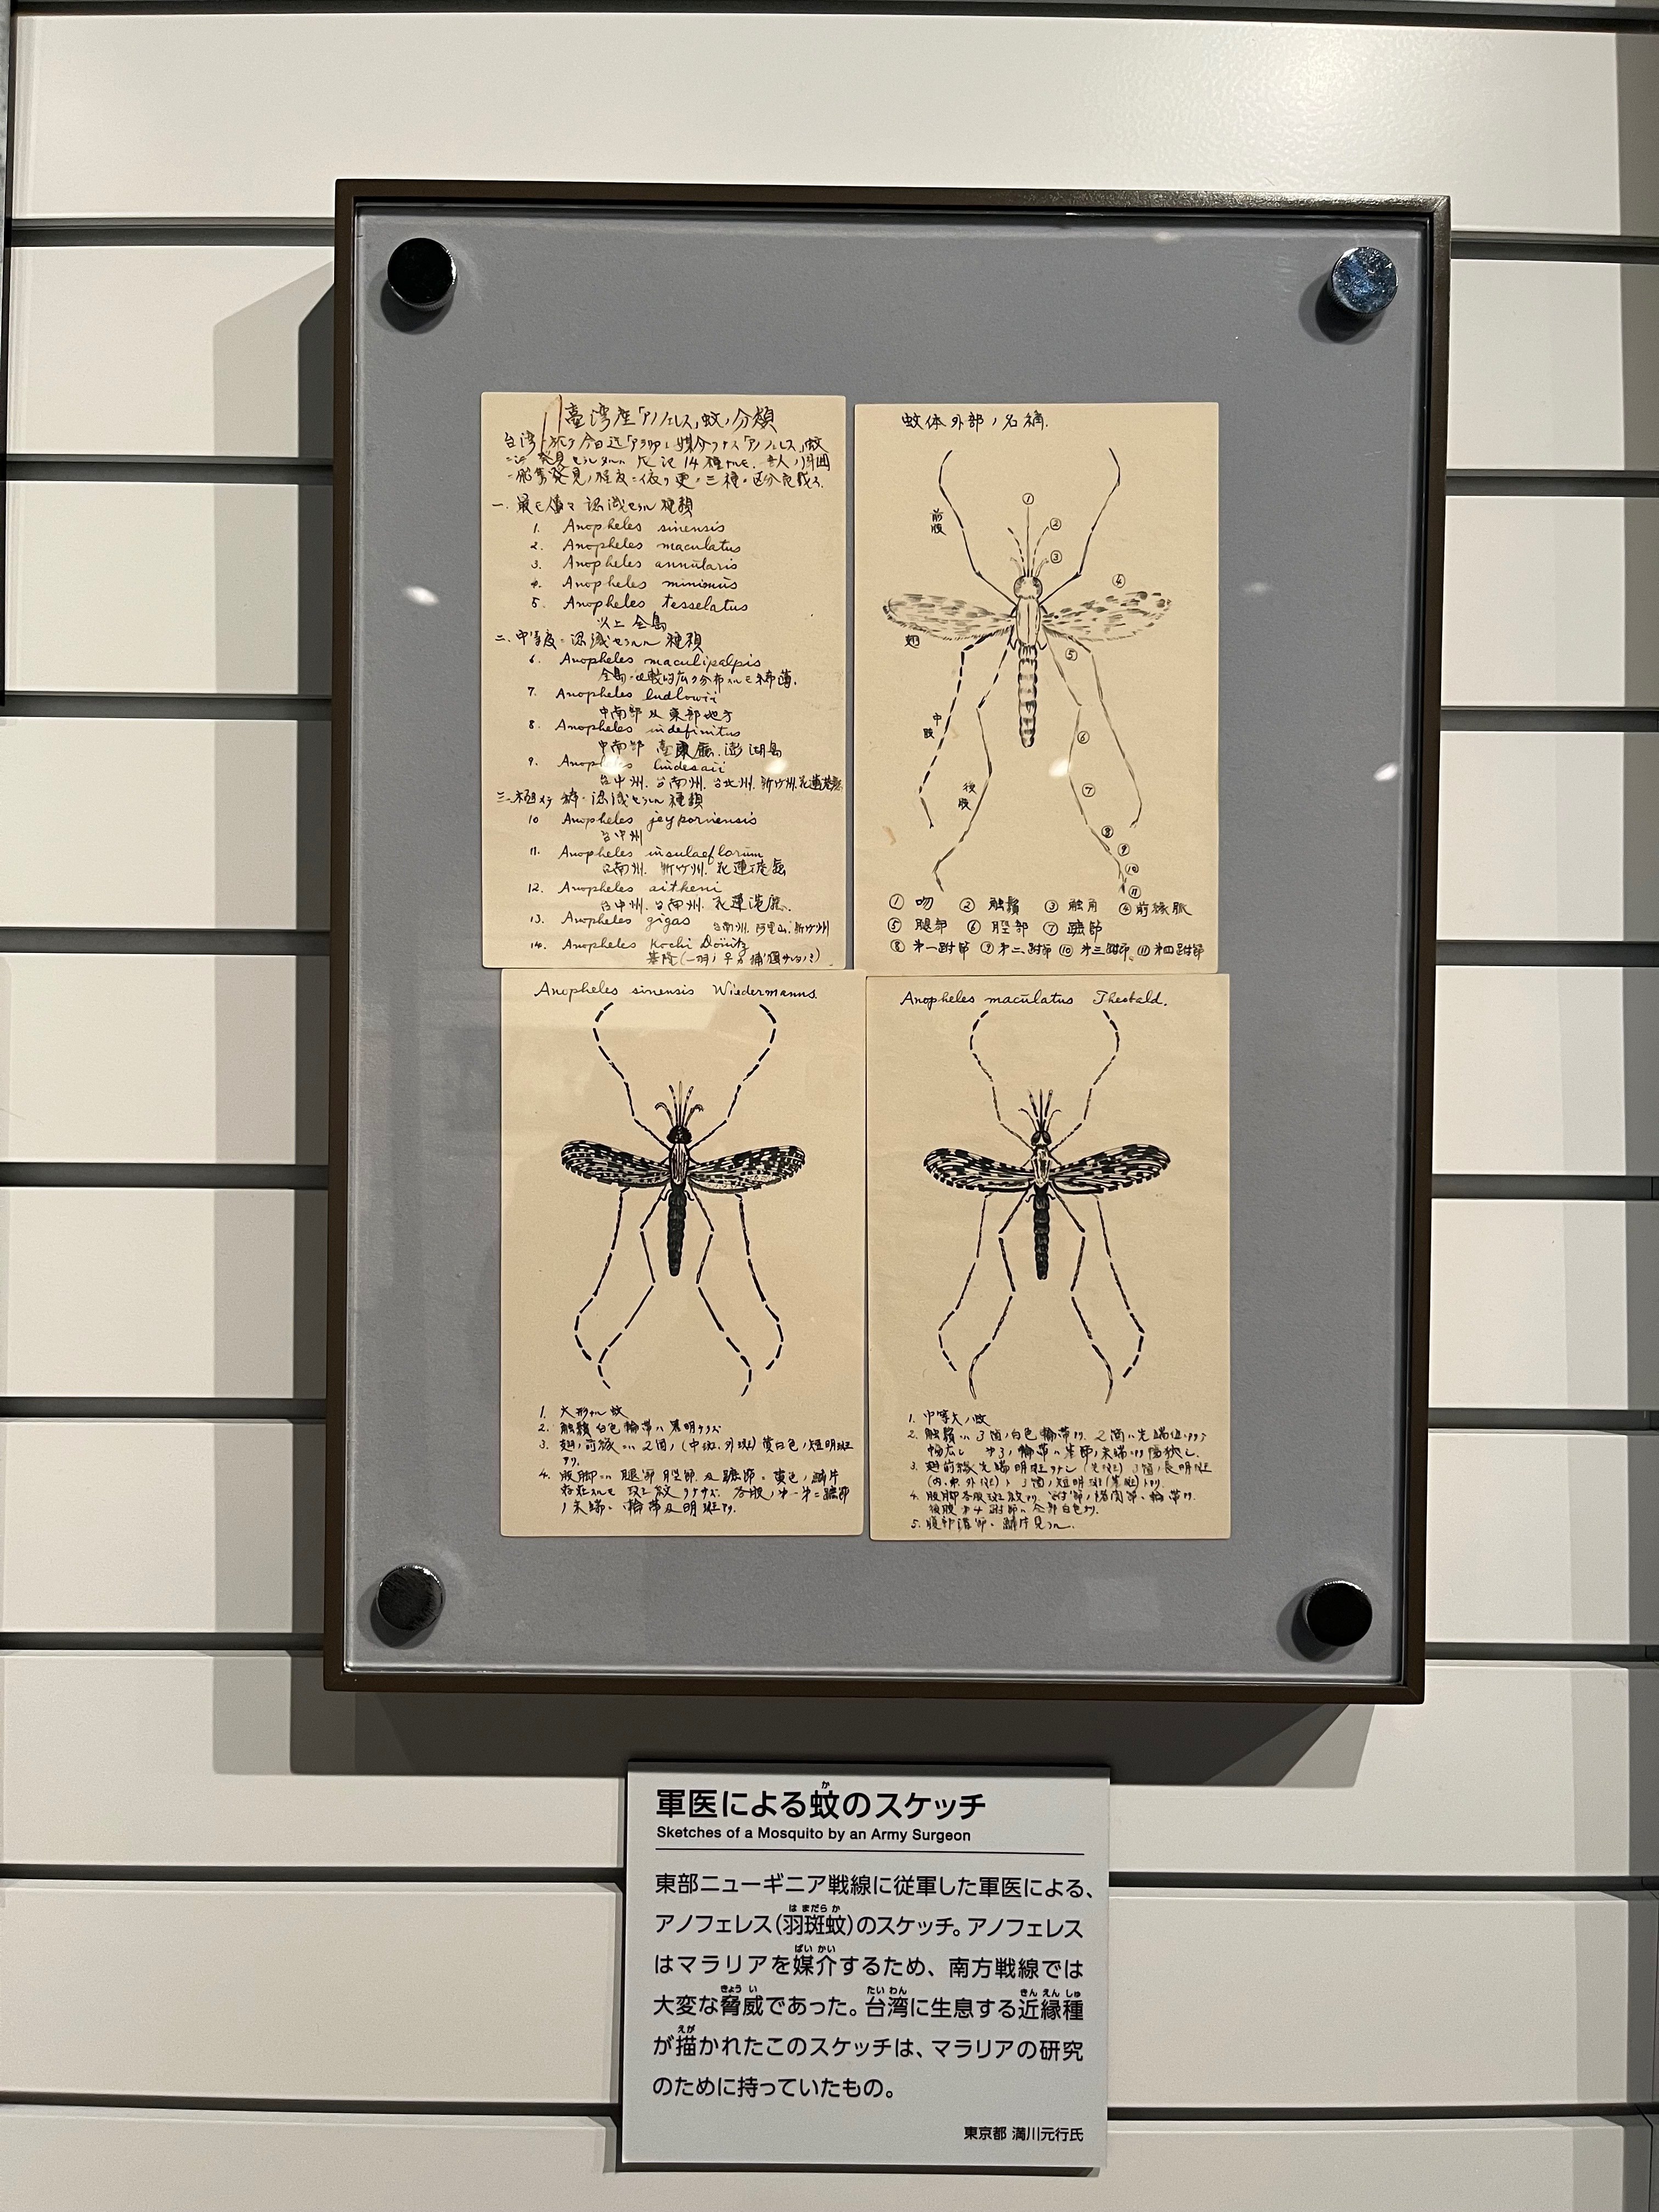 臺湾産「アノフェレス」蚊ノ分類
一. 最モ普ク認識セラルル種類
1. Anopheles sinensis
2. Anopheles maculatus
3. Anopheles annularis
4. Anopheles minimus
5. Anopheles tesselatus
以上 全島
二. 中等度ニ認識セラルル種類
6. Anopheles maculipalpis
7. Anopheles ludlowii
中南部及東部地方
8. Anopheles indefinitus
中南部 臺東廳. 澎湖島
9. Anopheles lindesaii
台中州. 台南州. 台北州. 新竹州. 花蓮港廳
三. 極メテ稀ニ認識セラルル種類
10 Anopheles jeyporiensis
台中州
11. Anopheles insulaeflorum
台南州. 新竹州. 花蓮港廳
12. Anopheles aitkeni
台中州. 台南州. 花蓮港廳.
13. Anopheles gigas 台南州. 阿里山. 新竹州
14. Anopheles Kochi Dönitz
蚊体外部ノ名稱.
前肢
①
②
③
④
翅
⑤
中肢
⑥
後肢
⑦
⑧
⑨
⑩
⑪
① 吻 ② 触鬚 ③ 触角 ④ 前縁脈
⑤ 腿部 ⑥ 脛部 ⑦ 蹠節
⑧ 第一跗節 ⑨ 第二跗節 ⑩ 第三跗節 ⑪ 第四跗節
Anopheles sinensis Wiedermanns.
1. 大形ナル蚊
2. 触鬚白色輪帯ハ著明ナラズ
3. 翅ノ前縁ニハ2箇ノ(中斑.外斑)黄白色ノ短明斑
アリ.
ノ末端ニ輪帯及明斑アリ.
Anopheles maculatus Theobald.
1. 中等大ノ蚊
2. 触鬚ニハ3箇ノ白色輪帯アリ. 2箇ハ先端ニ位シ
5. 腹部
軍医による蚊のスケッチ
Sketches of a Mosquito by an Army Surgeon
東部ニューギニア戦線に従軍した軍医による、
アノフェレス(羽斑蚊)のスケッチ。アノフェレス
はマラリアを媒介するため、南方戦線では
大変な脅威であった。台湾に生息する近縁種
が描かれたこのスケッチは、マラリアの研究
のために持っていたもの。
東京都 満川元行氏